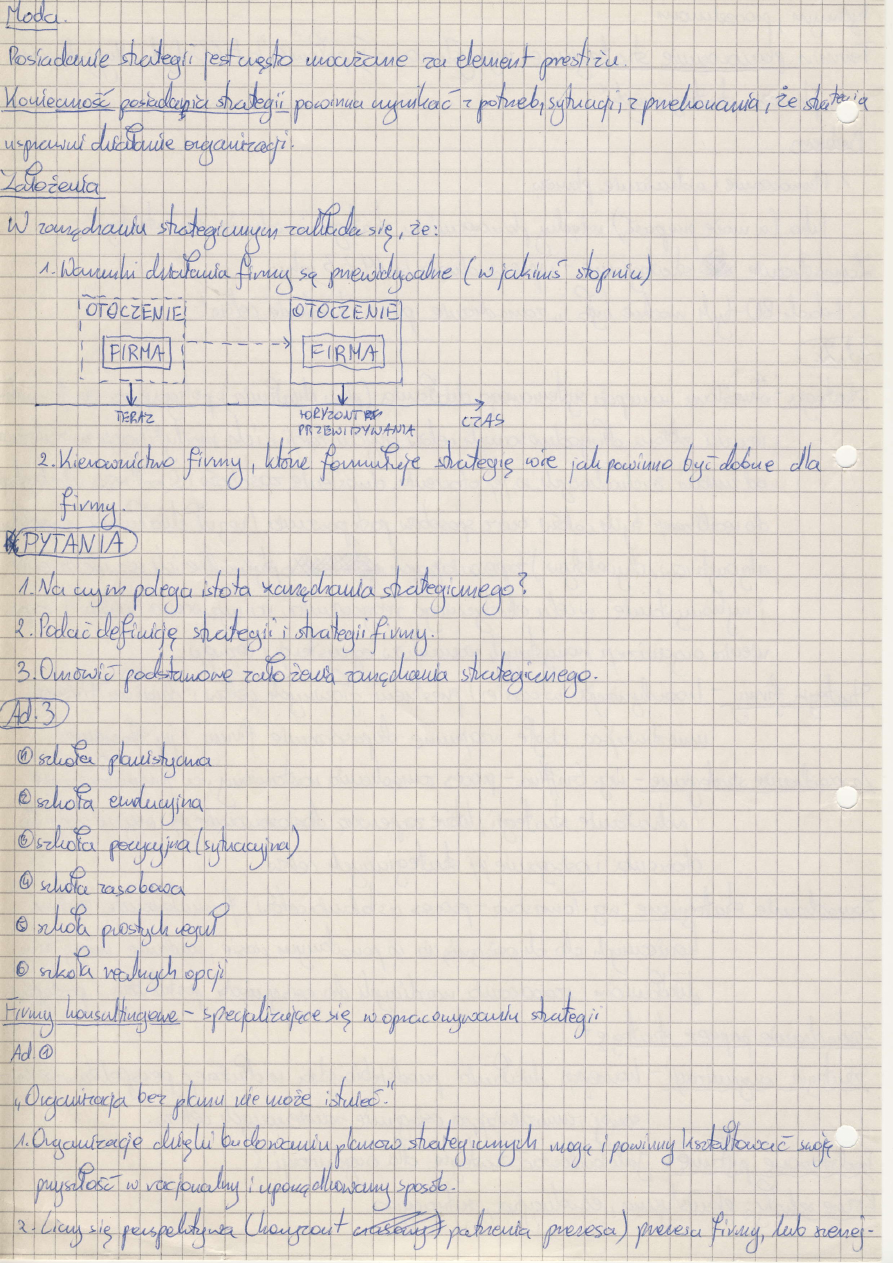 Moda.
Posiadanie strategii jest często uważane za element prestiżu.
Konieczność posiadania strategii powinna wynikać z potrzeb, sytuacji, z przekonania, że strategia
usprawni działanie organizacji.
Założenia
W zarządzaniu strategicznym zakłada się, że:
1. Warunki działania firmy są przewidywalne (w jakimś stopniu)
OTOCZENIE OTOCZENIE
FIRMA FIRMA
TERAZ HORYZONT CZAS
PRZEWIDYWANIA
2. Kierownictwo firmy, które formułuje strategię wie jak powinno być dobrze dla
firmy.
PYTANIA
1. Na czym polega istota zarządzania strategicznego?
2. Podać definicję strategii i strategii firmy.
3. Omówić podstawowe założenia zarządzania strategicznego.
Ad. 3
① szkoła planistyczna
② szkoła ewolucyjna
③ szkoła pozycyjna (sytuacyjna)
④ szkoła zasobowa
⑤ szkoła prostych reguł
⑥ szkoła realnych opcji
Firmy konsultingowe - specjalizujące się w opracowywaniu strategii
Ad ①
„Organizacja bez planu nie może istnieć."
1. Organizacje dzięki budowaniu planów strategicznych mogą i powinny kształtować swoją
przyszłość w racjonalny i uporządkowany sposób.
2. Liczy się perspektywa (horyzont czasowy patrzenia prezesa) prezesa firmy, lub szerej-